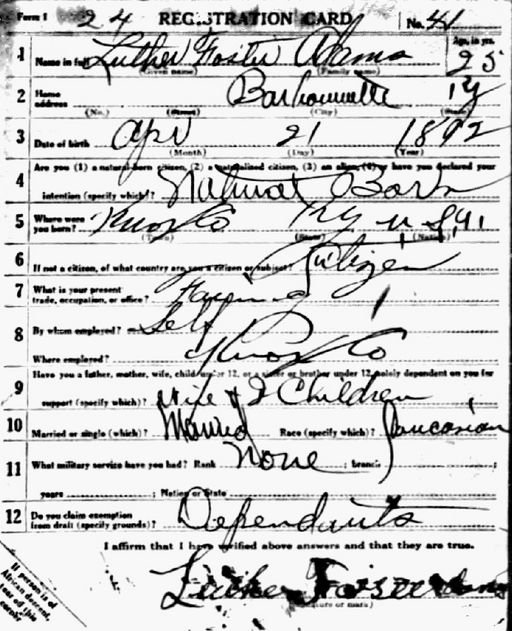 Form 1 24 REGISTRATION CARD No. 41
1 Name in full Luther Foster Adams Age, in yrs. 25
(Given name) (Family name)
2 Home address Barbourville Ky
(No.) (Street) (City) (State)
3 Date of birth Apr 21 1892
(Month) (Day) (Year)
Are you (1) a natural-born citizen, (2) a naturalized citizen, (3) an alien, (4) or have you declared your
4 intention (specify which)? Natural Born
5 Where were you born? Knox Co Ky U.S.A.
(Town) (State) (Nation)
6 If not a citizen, of what country are you a citizen or subject? Citizen
7 What is your present trade, occupation, or office? Farming
8 By whom employed? Self
Where employed? Knox Co
Have you a father, mother, wife, child under 12, or a sister or brother under 12, solely dependent on you for
9 support (specify which)? Wife & Children
10 Married or single (which)? Married Race (specify which)? Caucasian
11 What military service have you had? Rank None ; branch
years ; Nation or State
12 Do you claim exemption from draft (specify grounds)? Dependants
I affirm that I have verified above answers and that they are true.
Luther Foster Adams
(Signature or mark)
If person is of
African descent,
tear off this
corner